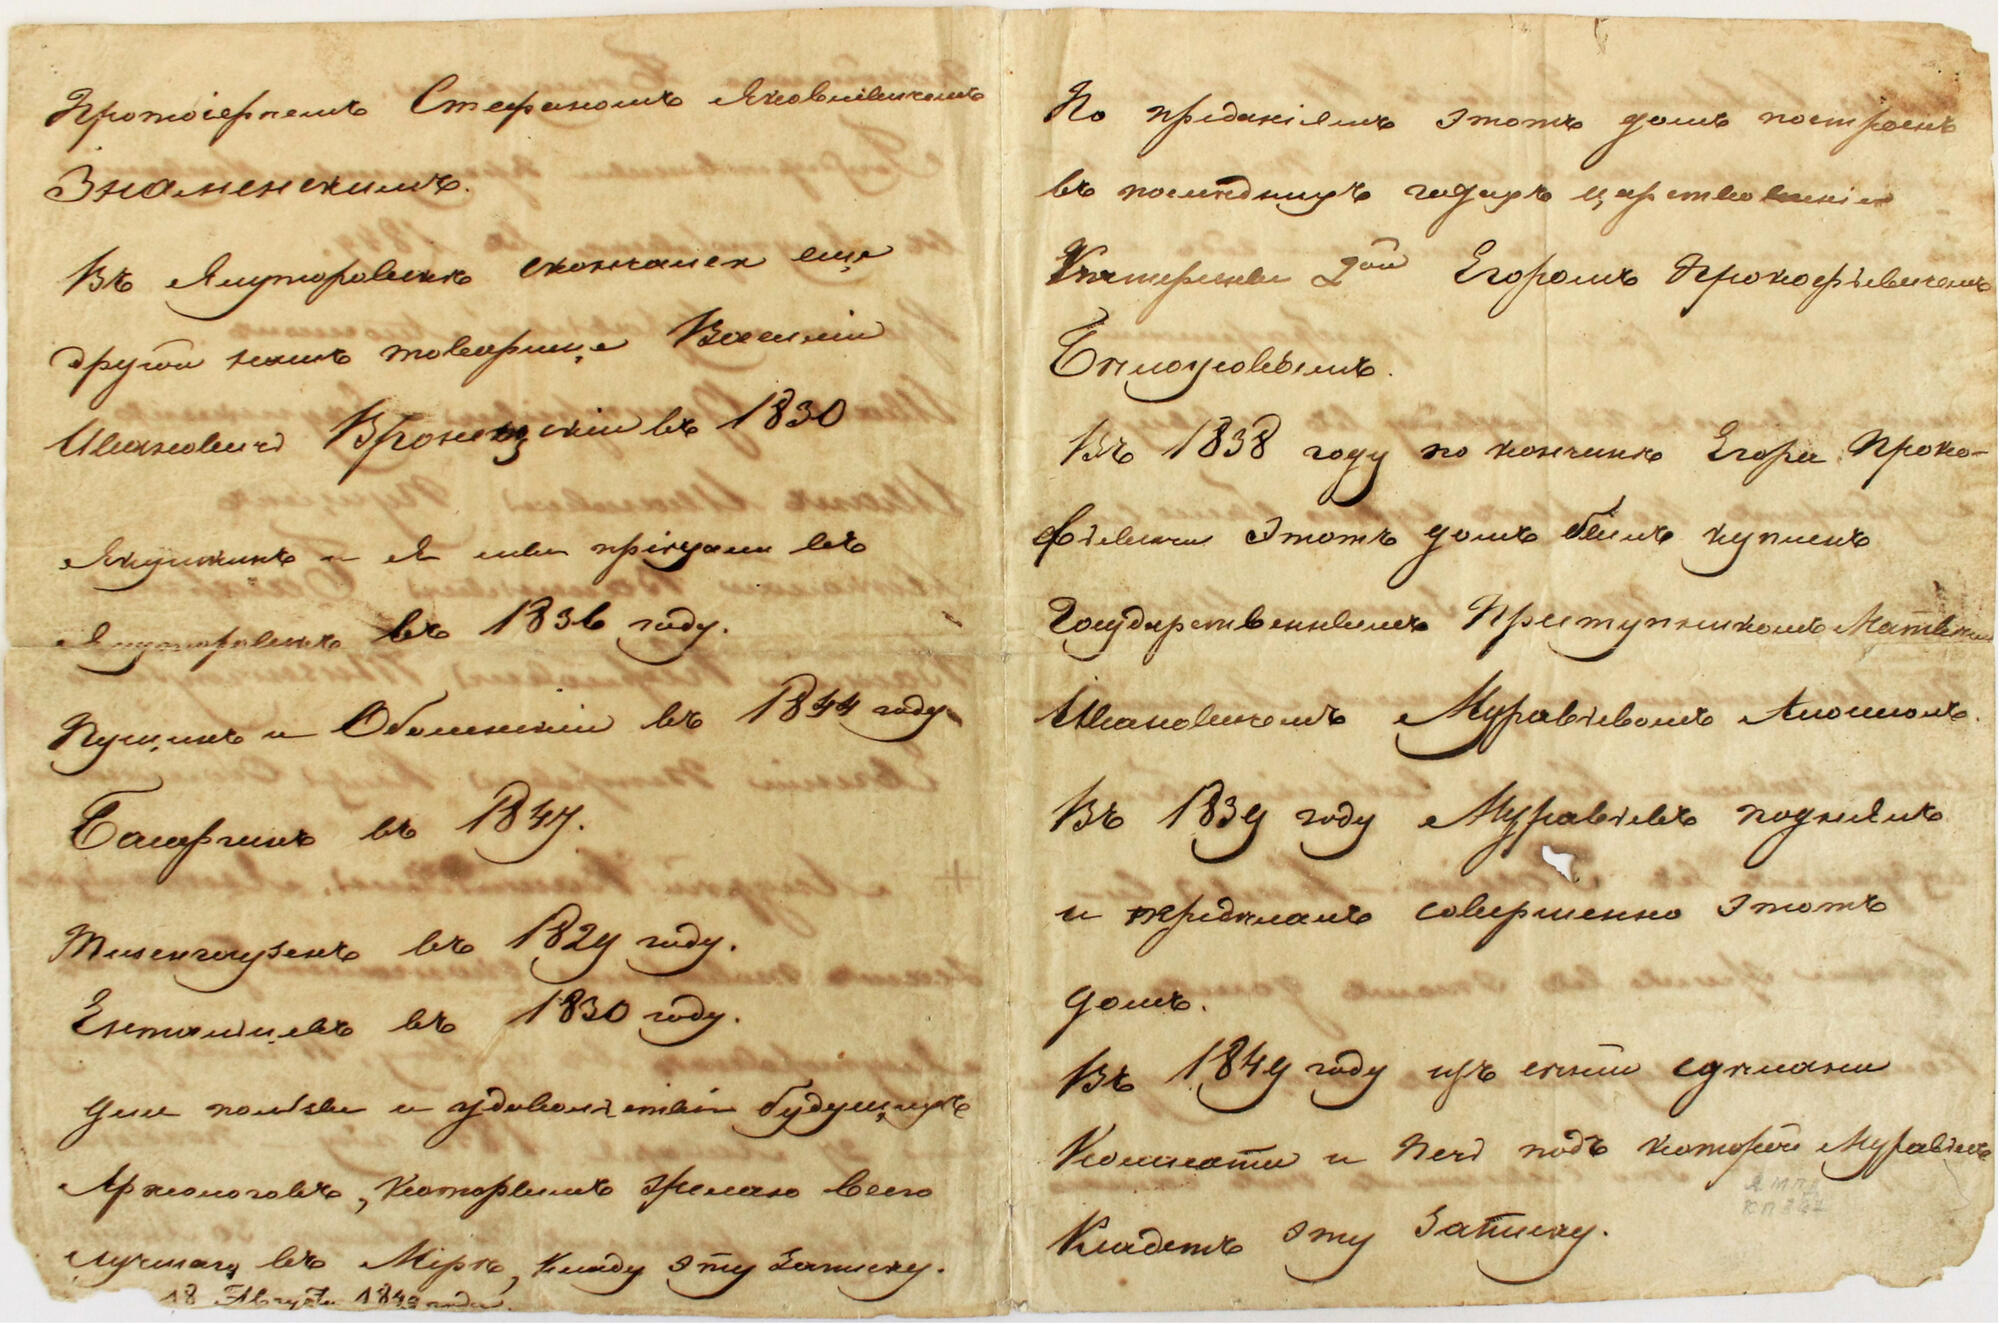 Протоіереемъ Стефаномъ Яковлевичемъ
Знаменскимъ.
Въ Ялуторовскѣ скончался еще
другой нашъ товарищъ Василій
Ивановичь Вроницкій въ 1830
Якушкинъ и я мы пріехали въ
Ялуторовскъ въ 1836 году.
Пущинъ и Оболенскій въ 1844 году
Басаргинъ въ 1847.
Тизенгаузенъ въ 1829 году.
Ентальцевъ въ 1830 году.
Для пользы и удовольствія будущихъ
Археологовъ, которымъ желаю всего
лучшаго въ Мірѣ, кладу эту записку.
18 Августа 1849 года.
По преданіямъ этотъ домъ построенъ
въ последнихъ годахъ царствованія
Екатерины 2ой Егоромъ Прокофьевичемъ
Белоусовымъ.
Въ 1838 году по кончинѣ Егора Проко-
фьевича этотъ домъ былъ купленъ
Государственнымъ Преступникомъ Матвеемъ
Ивановичемъ Муравьевымъ Апостоломъ.
Въ 1839 году Муравьевъ поднялъ
и переделалъ совершенно этотъ
домъ.
Въ 1849 году изъ сеней сделаны
Комната и Печь подъ которой Муравьевъ
Кладетъ эту Записку.
ЯМПД
КП 347